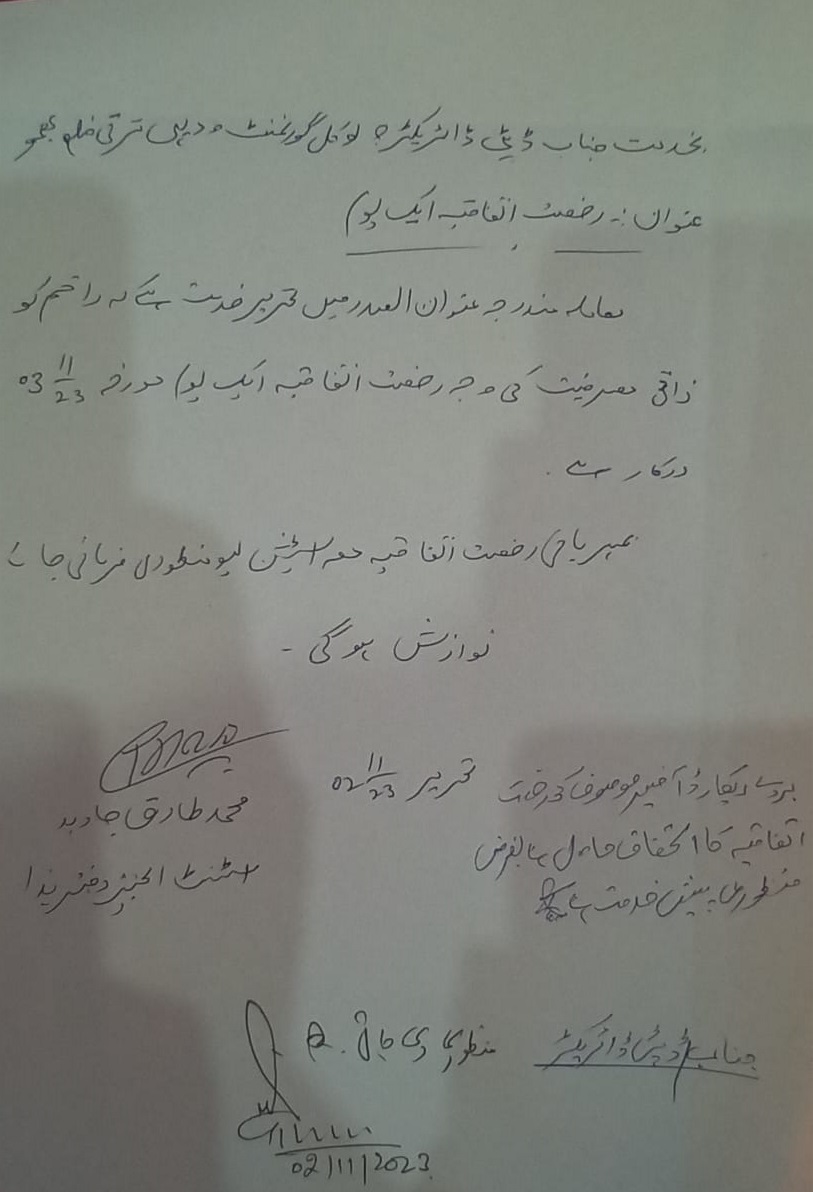 بخدمت جناب ڈپٹی ڈائریکٹر لوکل گورنمنٹ و دیہی ترقی ضلع
عنوان :۔ رخصت اتفاقیہ ایک یوم
معاملہ مندرجہ عنوان الصدر میں تحریر خدمت ہے کہ راقم کو
ذاتی مصروفیت کی وجہ رخصت اتفاقیہ ایک یوم مورخہ 03 11/23
درکار ہے ۔
بمہربانی رخصت اتفاقیہ معہ اسٹیشن لیو منظوری فرمائی جائے
نوازش ہوگی ۔
تحریر 02 11/23
محمد طارق جاوید
اسسٹنٹ انجینئر دفتر ہذا
بروئے ریکارڈ آفیسر موصوف کو رخصت
اتفاقیہ کا استحقاق حاصل ہے بالغرض
منظوری پیش خدمت ہے
جناب ڈپٹی ڈائریکٹر
منظوری دی جاتی ہے
02/11/2023